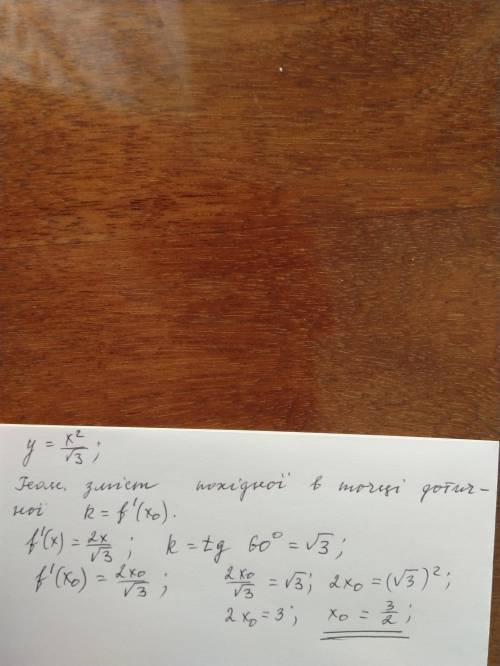 y = x²/√3 ;
Геом. зміст похідної в точці дотич-
ної k = f'(x₀).
f'(x) = 2x/√3 ; k = tg 60° = √3 ;
f'(x₀) = 2x₀/√3 ; 2x₀/√3 = √3 ; 2x₀ = (√3)² ;
2x₀ = 3 ; x₀ = 3/2 ;